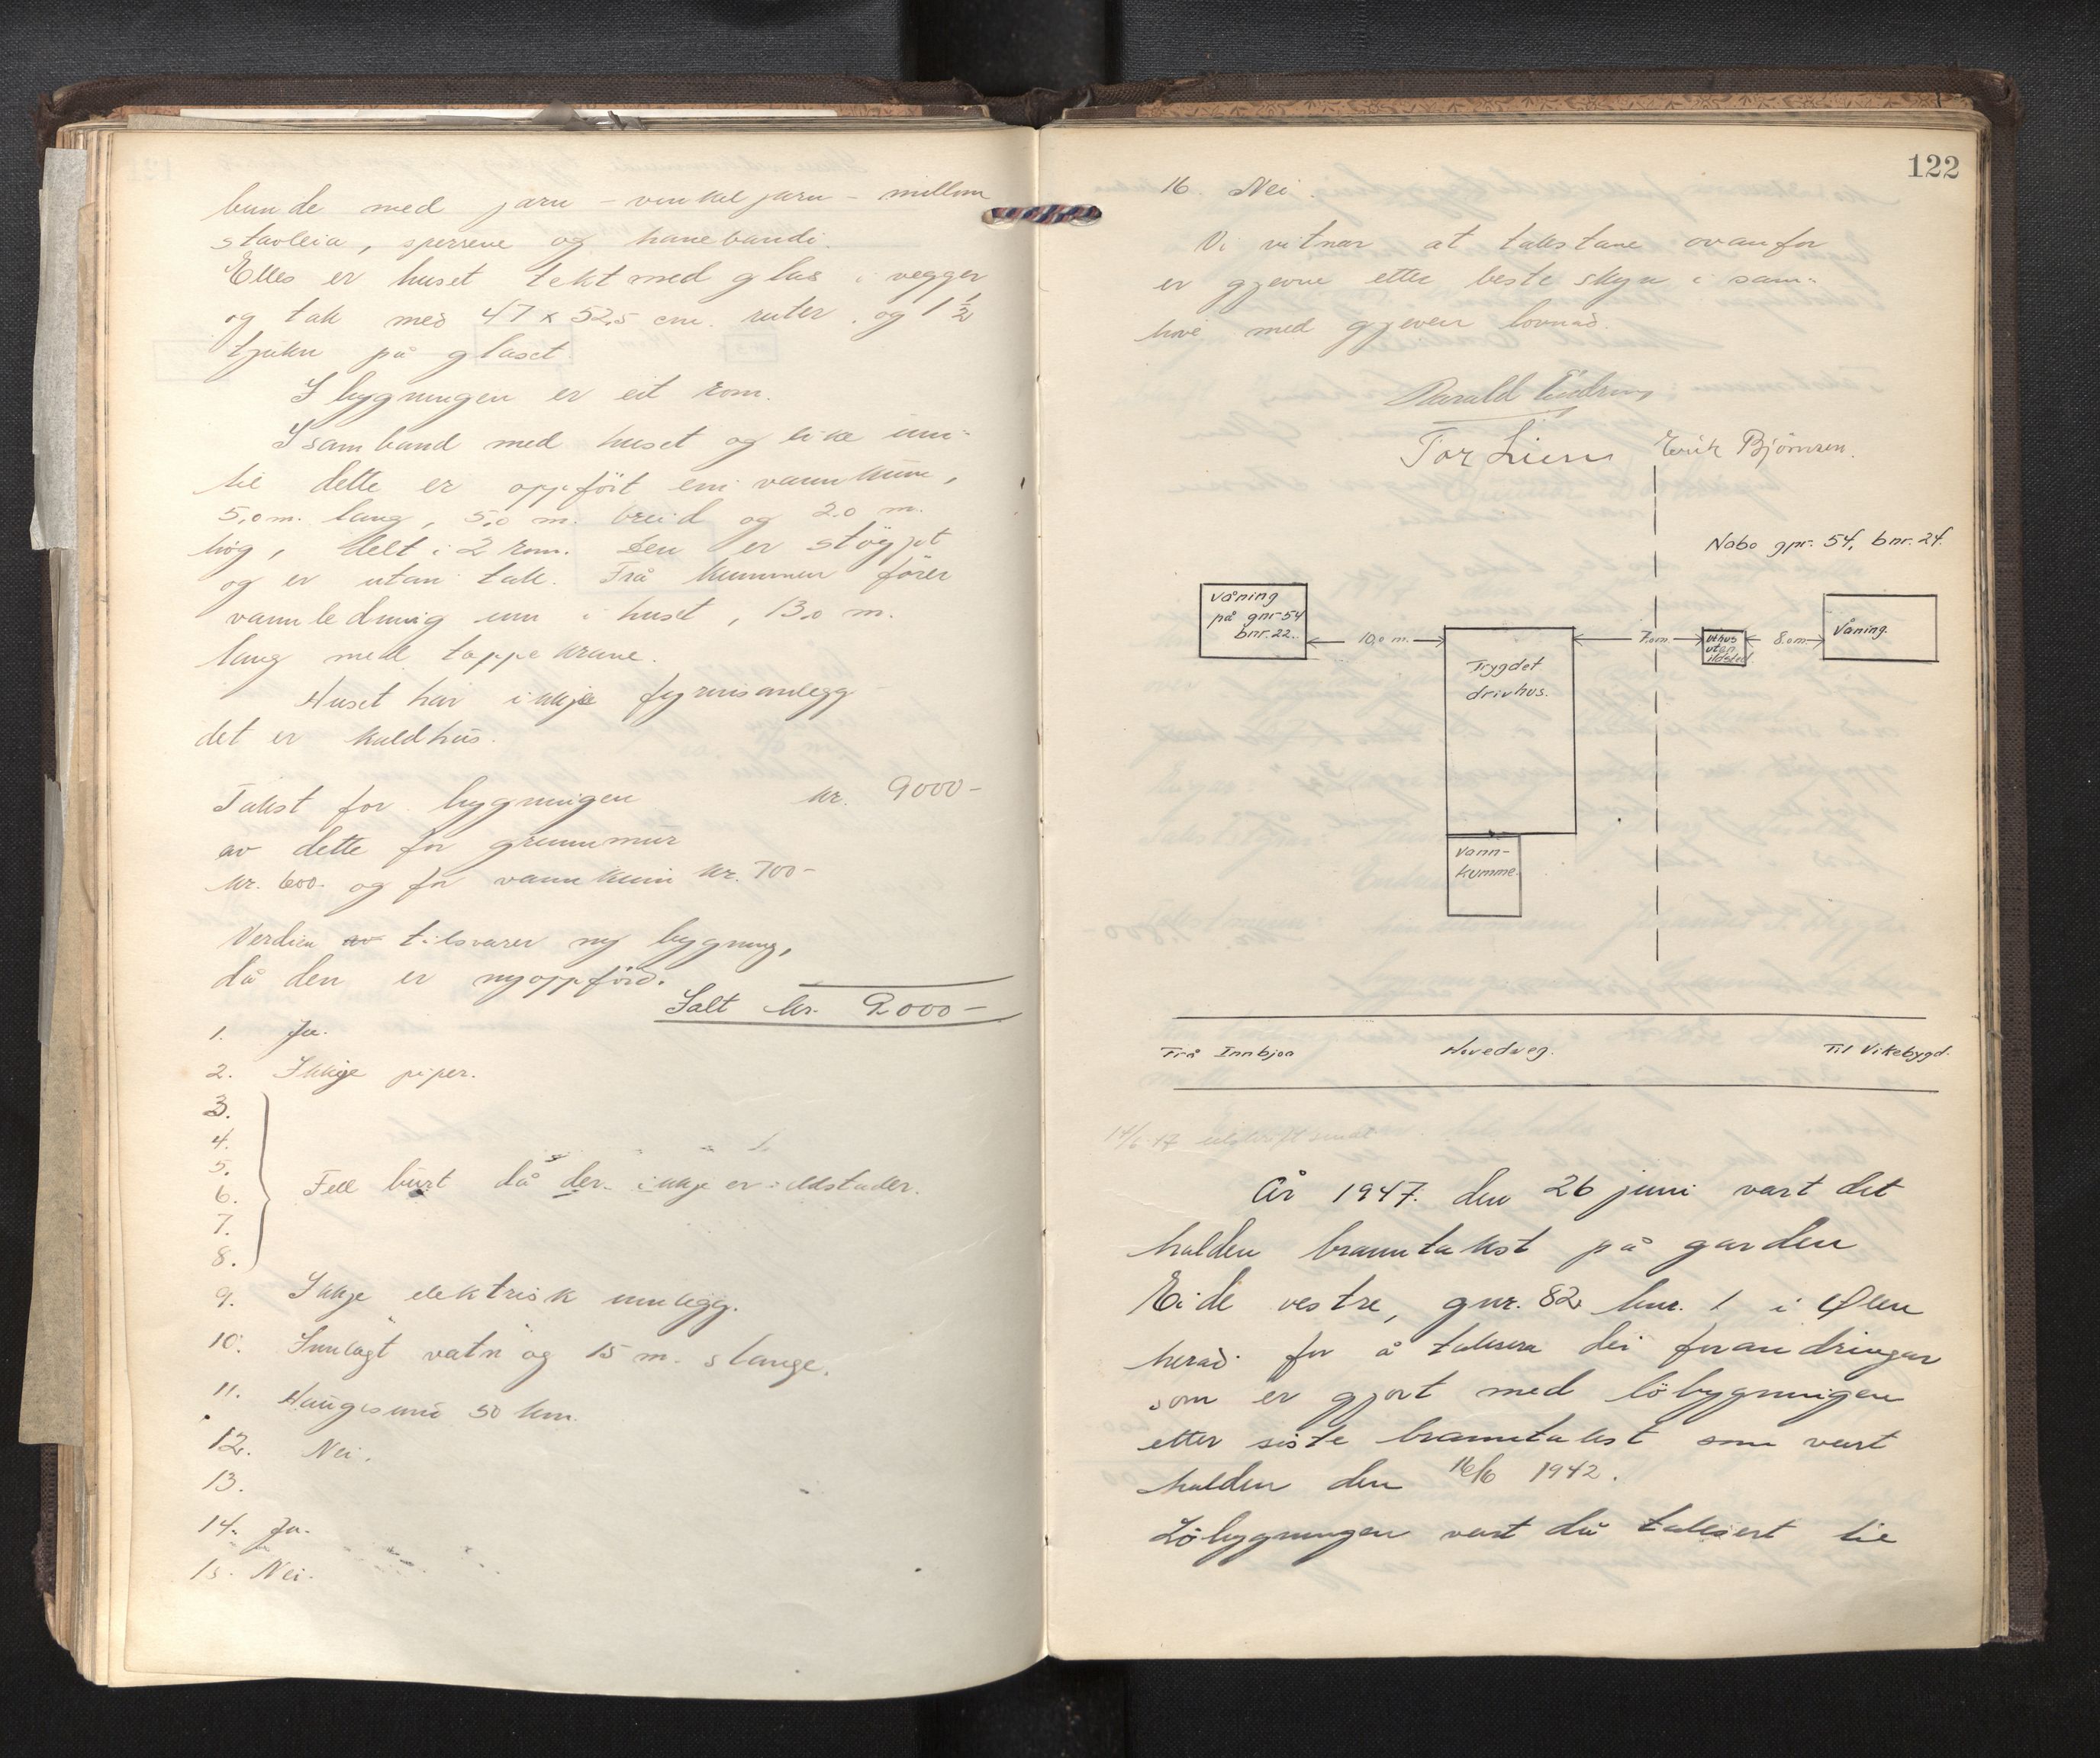 bunde med jarn - vinkeljarn - millom
stavleia, sperrene og hanebandi.
Elles er huset tekt med glas i vegger
og tak med 47 x 52,5 cm. ruter. og 1 1/2
tjukn på glaset.
I bygningen er eit rom.
I samband med huset og like inn-
til dette er oppført ein vannkum,
5,0 m. lang, 5,0 m. breid og 2.0 m.
høg, delt i 2 rom. Den er støypt
og er utan tak. Frå kummen fører
vannledning inn i huset, 13,0 m.
lang med tappekrane.
Huset har ikkje fyrings anlegg
det er kaldhus.
Takst for bygningen kr. 9000-
av dette for grunnmur
kr. 600.- og for vannkum kr. 700-
Verdien av tilsvarer ny bygning,
då den er nyoppförd.
Ialt kr. 9000-
1. Ja.
2. Ikkje piper.
3.
4.
5.
6. Fell burt då der ikkje er ildstader.
7.
8.
9. Ikkje elektrisk innlegg.
10. Innlagt vatn og 15 m. slange.
11. Haugesund 50 km.
12. Nei.
13.
14. Ja.
15. Nei.
122
16. Nei.
Vi vitnar at takstane ovanfor
er gjevne etter beste skyn i sam-
hove med gjeven lovnad.
Harald
Tor Lien Erik Bjørnsen.
Nabo gnr. 54, bnr. 24.
Våning
på gnr 54
bnr. 22.
10,0 m.
7.0m.
Uthus
uten
ildsted.
8.0m
Våning.
Trygdet
drivhus.
Vann-
kumme.
Frå Innbjoa Hovedveg. Til Vikebygd.
14/6-47 utskrift sendt
År 1947. den 26 juni vart det
halden branntakst på garden
Eide vestre, gnr. 82 bnr. 1 i Ølen
herad for å taksera dei forandringar
som er gjort med löbygningen
etter siste branntakst som vart
halden den 16/6 1942.
Löbygningen vart då taksert til